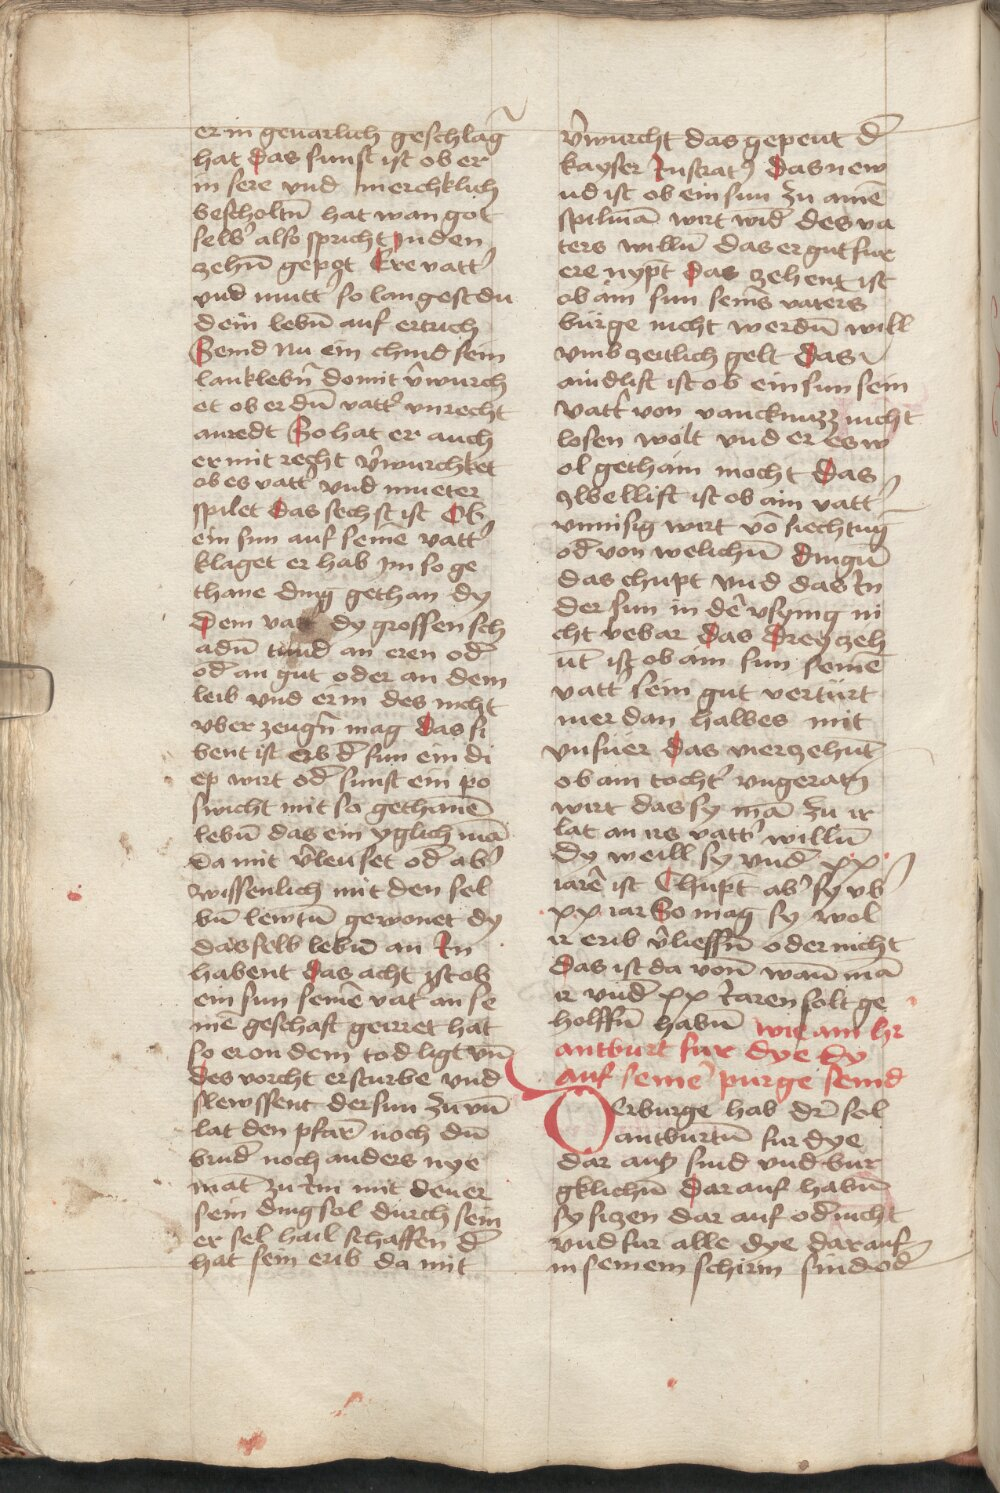 er in geuarlich geschlag̃
hat das funft ist ob er
in sere vnd merchklich
bescholtñ hat wan got
selbˀ also spricht in den
zehñ gepot Ere vattˀ
vnd muttˀ so langest du
dein lebñ auf ertrich
Seind nu ein chind sein
lanklebñ domit v̂wurch
et ob er dñ vattˀ vnrecht
anredt So hat er auch
er mit recht v̂wurchket
ob es vattˀ vnd mueter
spilet das sechst ist Ob
ein sun auf seinē vattˀ
klaget er hab im so ge
thane ding gethan dy
dem vat dy grossen sch
adñ tund an eren od̄
od̄ an gut oder an dem
leib vnd er in des nicht
vber zeugñ mag das si
bent ist erb d̄ sun ein di
ep wirt od̄ sunst ein po
swicht mit so gethanē
lebñ das ein yglich mā
da mit v̂leuset od̄ abˀ
wissenlich mit den sel
bñ lewtñ gewonet dy
das selb lebñ an in
habent das acht ist ob
ein sun seinē vatˀ an se
inē geschaft geirret hat
so er on dem tod ligt vñ
des vorcht er sturbe vnd
slewssent der sun zu vñ
lat den pfarˀ noch dñ
brud̄ noch anders nye
mat zu im mit dem er
sein ding sol durch sein
er sel hail schaffen d̄
hat sein erib da mit
v̂wurcht das gepeut d̄
kayser Justratˀ das new
nd ist ob ein sun zu ainē
spilmā wirt wid̄ des va
ters willñ das er gut fur
ere nypt das zehent ist
ob aim sun seins vaters
bürge nicht werdñ will
vmb zeitlich gelt das
aindlift ist ob ein sun sein
vattˀ von vancknuzz nicht
losen wolt vnd er es w
ol getham mocht das
zlbellift ist ob ain vattˀ
vnnisig wirt vō siechtūg
od̄ von welichñ dingñ
das chupt vnd das in
der sun in dē vsynig ni
cht vebar das dreyzeh
nt ist ob aim sun seinē
vatt sein gut vertürt
mer dan halbes mit
vnfuer das vierzehnt
ob ain tochtˀ vngeratñ
wirt das sy mā zu ir
lat an irs vattˀ willñ
dy weill sy vnd̄ xx
iarē ist Chupt abˀ sy vbˀ
xx iar So mag sy wol
ir erib v̂lieffñ oder nicht
das ist da von wañ mā
ir vnd̄ xx iaren solt ge
holffñ habñ wie ain hr
antburt fur dye dy
auf seinē purge seind
Der burge hab dˀ sol
antburtñ fur dye
dar auf sind vnd bur
gklichñ dar auf habñ
sy sizen dar auf od̄ nicht
vnd fur alle dye darauf
in seinem schirm sind od̄